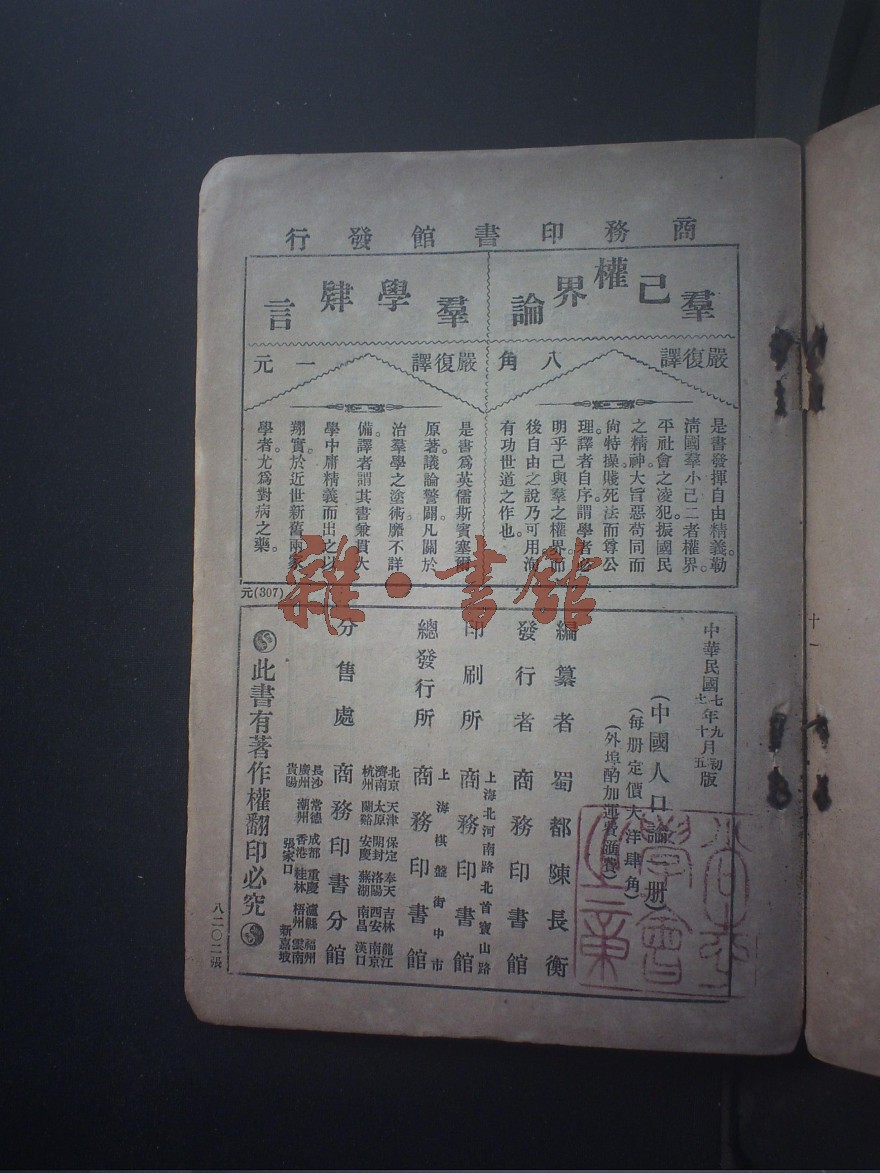 商務印書館發行
羣己權界論
嚴復譯 八角
是書發揮自由精義。勒
淸國羣小己二者權界。
平社會之凌犯。振國民
之精神。大旨惡苟同而
尙特操。賤死法而尊公
理。譯者自序。謂學者必
明乎己與羣之權界。而
後自由之說乃可用。洵
有功世道之作也。
羣學肄言
嚴復譯 一元
是書爲英儒斯賓塞爾
原著。議論警闢。凡關於
治羣學之塗術。靡不詳
備。譯者謂其書兼貫大
學中庸精義而出之以
翔實。於近世新舊兩家
學者。尤爲對病之藥。
元(307)
中華民國七年九月初版
(中國人口論一册)
(每册定價大洋肆角)
(外埠酌加運費匯費)
編纂者 蜀都陳長衡
發行者 商務印書館
上海北河南路北首寶山路
印刷所 商務印書館
上海棋盤街中市
總發行所 商務印書館
分售處 商務印書分館
北京 天津 保定 奉天 吉林 龍江
濟南 太原 開封 洛陽 西安 南京
杭州 蘭谿 安慶 蕪湖 南昌 漢口
長沙 常德 成都 重慶 瀘縣 福州
廣州 潮州 香港 桂林 梧州 雲南
貴陽 張家口 新嘉坡
此書有著作權翻印必究
八二〇二張
十一
雜·書館